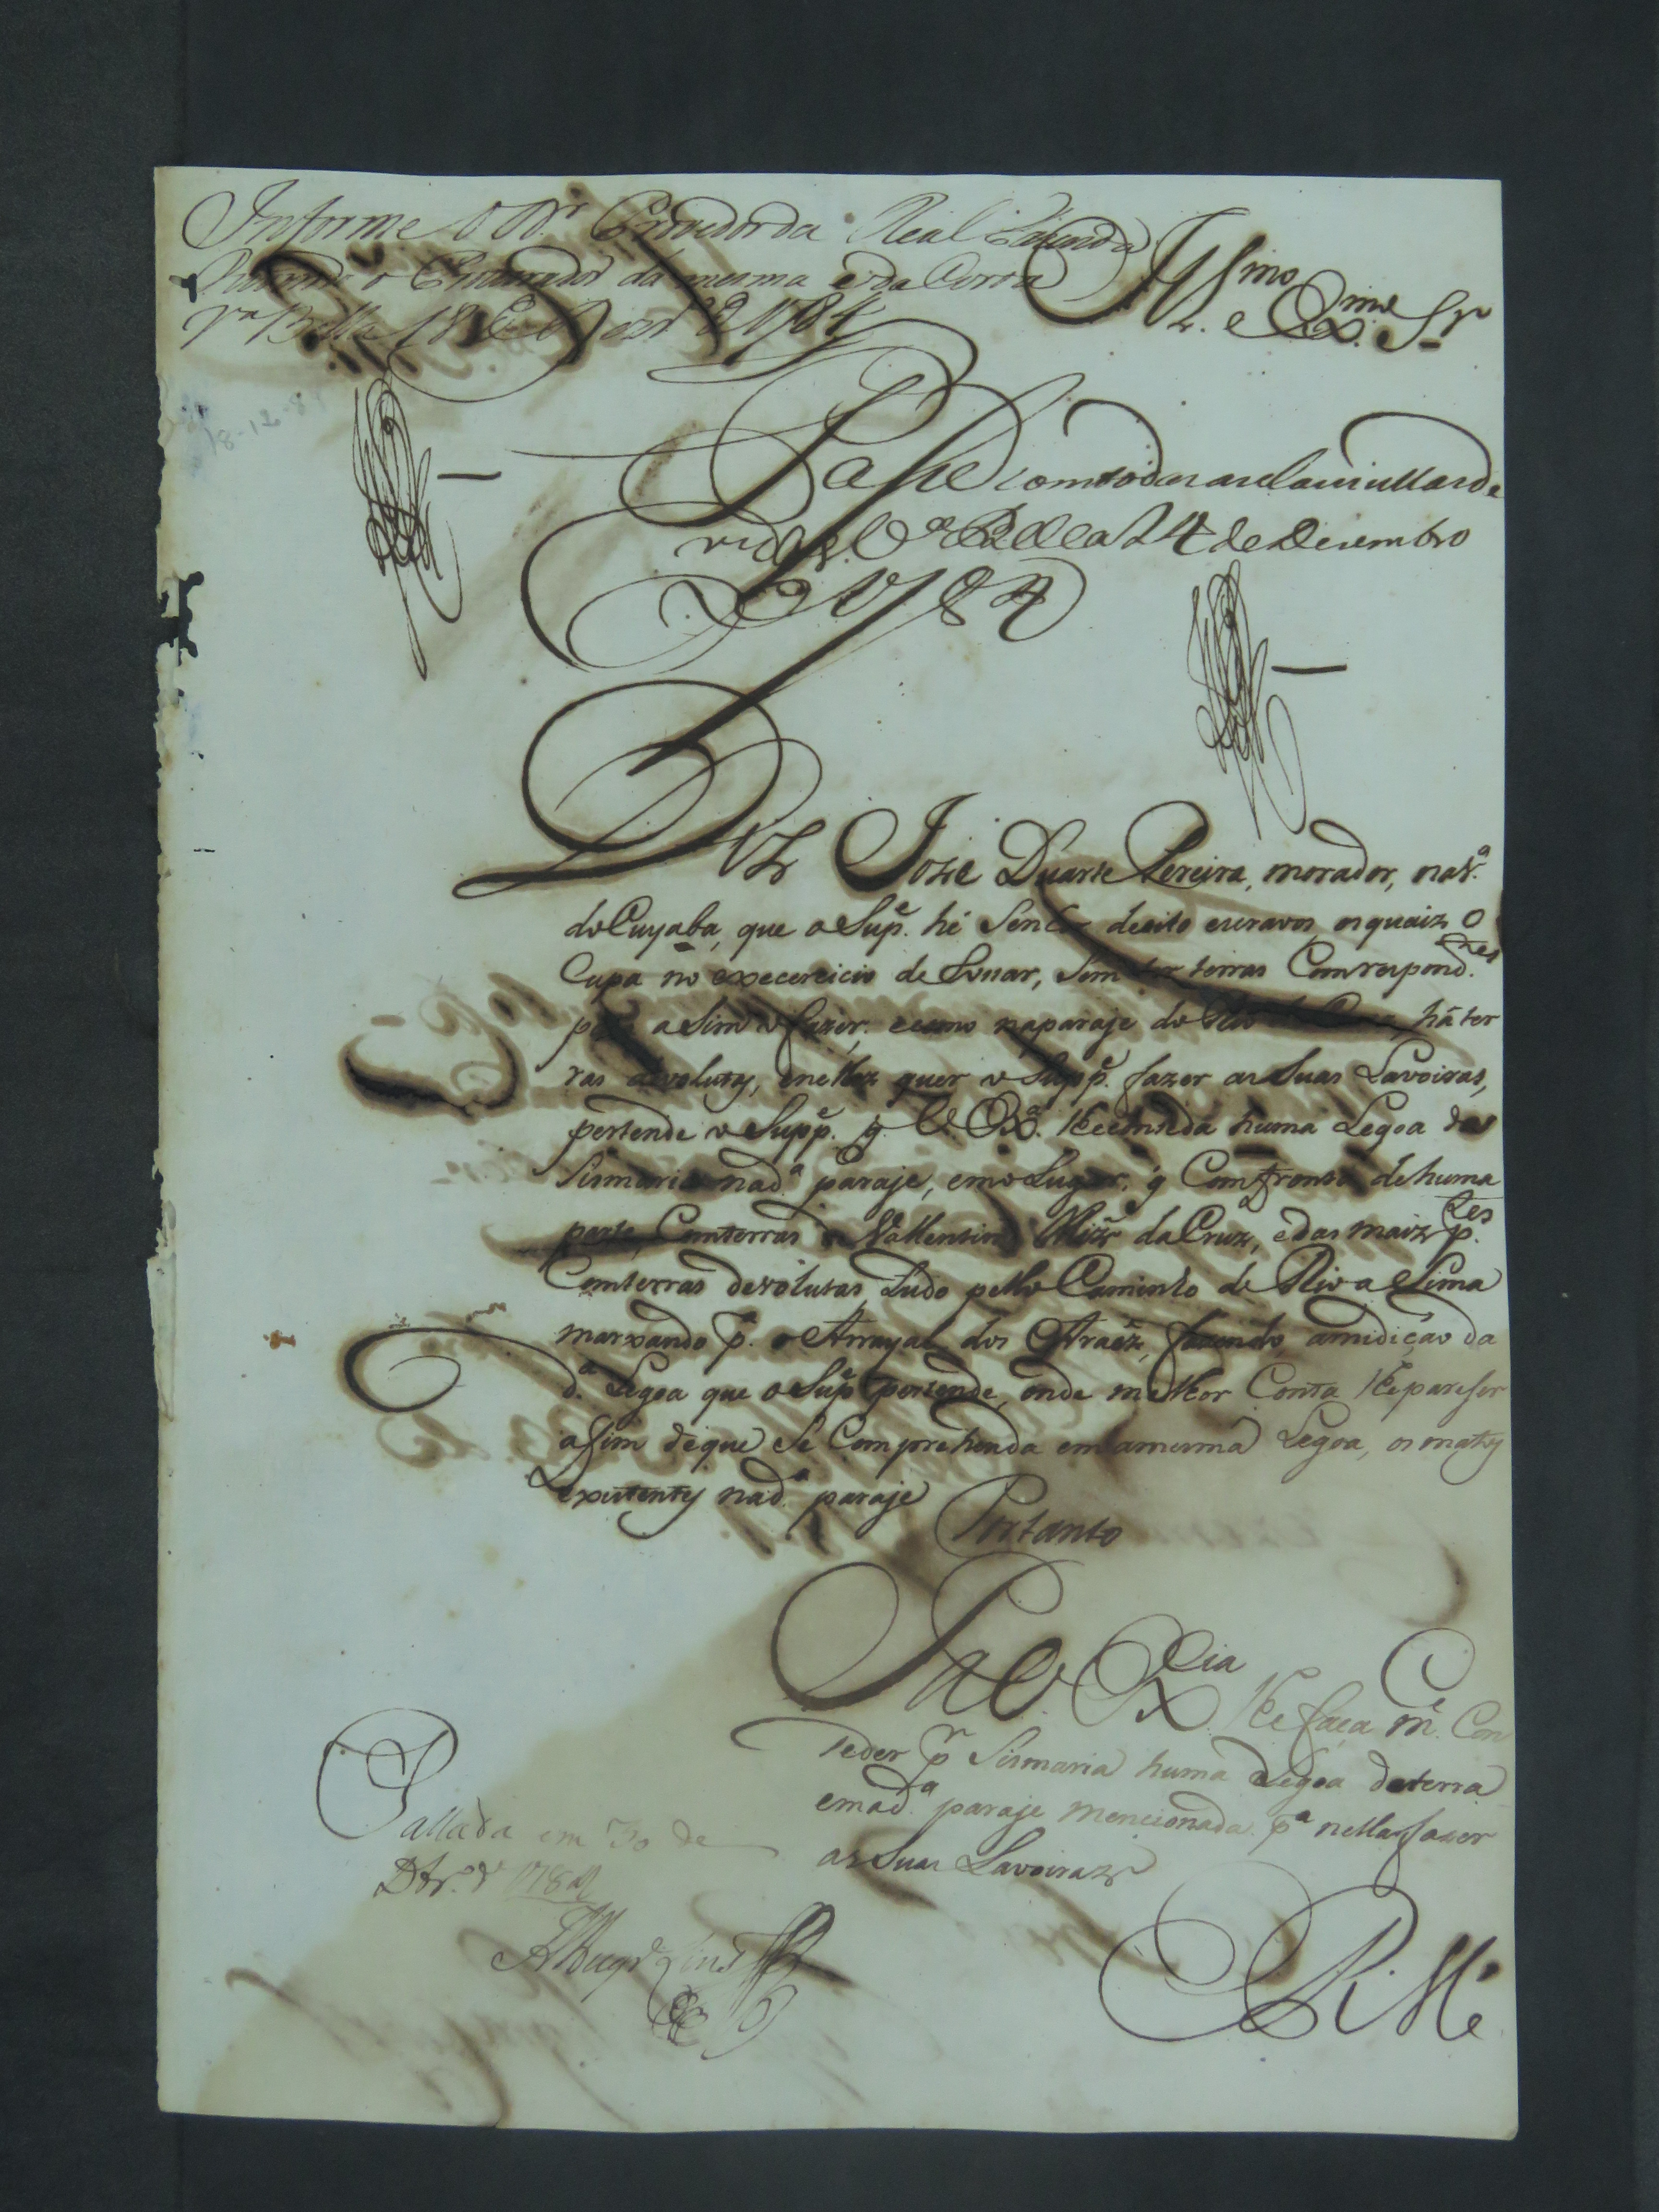 Informe o D.r Provedor da Real Fazenda
ouvindo o Procurador da mesma e da Coroa
V.a Bella 18 de Dezr.o de 1784
Ill.mo e Ex.mo Sr
Passe com todas as clauzullas de
vidas V.a Bella 24 de Dezembro
de 1784
Diz Joze Duarte Pereira, morador, na V.a
do Cuyaba, que o Sup.e hé Senhor de oito escravos, os quaiz O
Cupa no execercicio de Lonar, Sem ter terras Comrespond.tes
para asim o fazer; e como na paraje do Rio há ter
ras devolutas, e nellaz quer o Supp.e fazer as Suas Lavoiras,
pertende o Supp.e q. V. Ex.a lhe comseda huma Legoa de
Sismaria na d.a paraje, em o Lugar, q Comfronta de huma
parte, Com terras de Vallentim Miz da Cruz, e das maiz p.tes
Com terras devolutas tudo pello Caminho de Rio a Sima
marxando p.a o Arrayal dos Araéz, fazendo a midição da
d.a Legoa que o Sup.e pertende, onde melhor Conta lhe pareser
asim de que se Comprehenda em a mesma Legoa, os matos
existentes na d.a paraje
Portanto
P a V. Ex.cia lhe faça m.ce Con
seder p.r Sismaria huma Legoa de terra
em a d.a paraje mencionada p.a nella fazer
as Suas Lavoiraz
Passada em 30 de
Dbr.o de 1784
E R M.ce